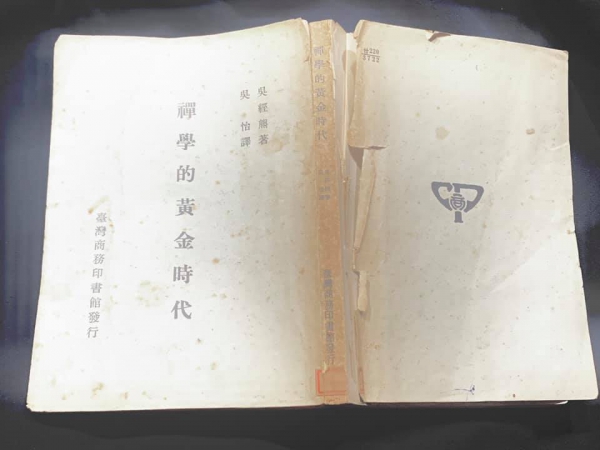 吳經熊著
吳怡譯
禪學的黃金時代
臺灣商務印書館發行
禪學的黃金時代
臺灣商務印書館發行